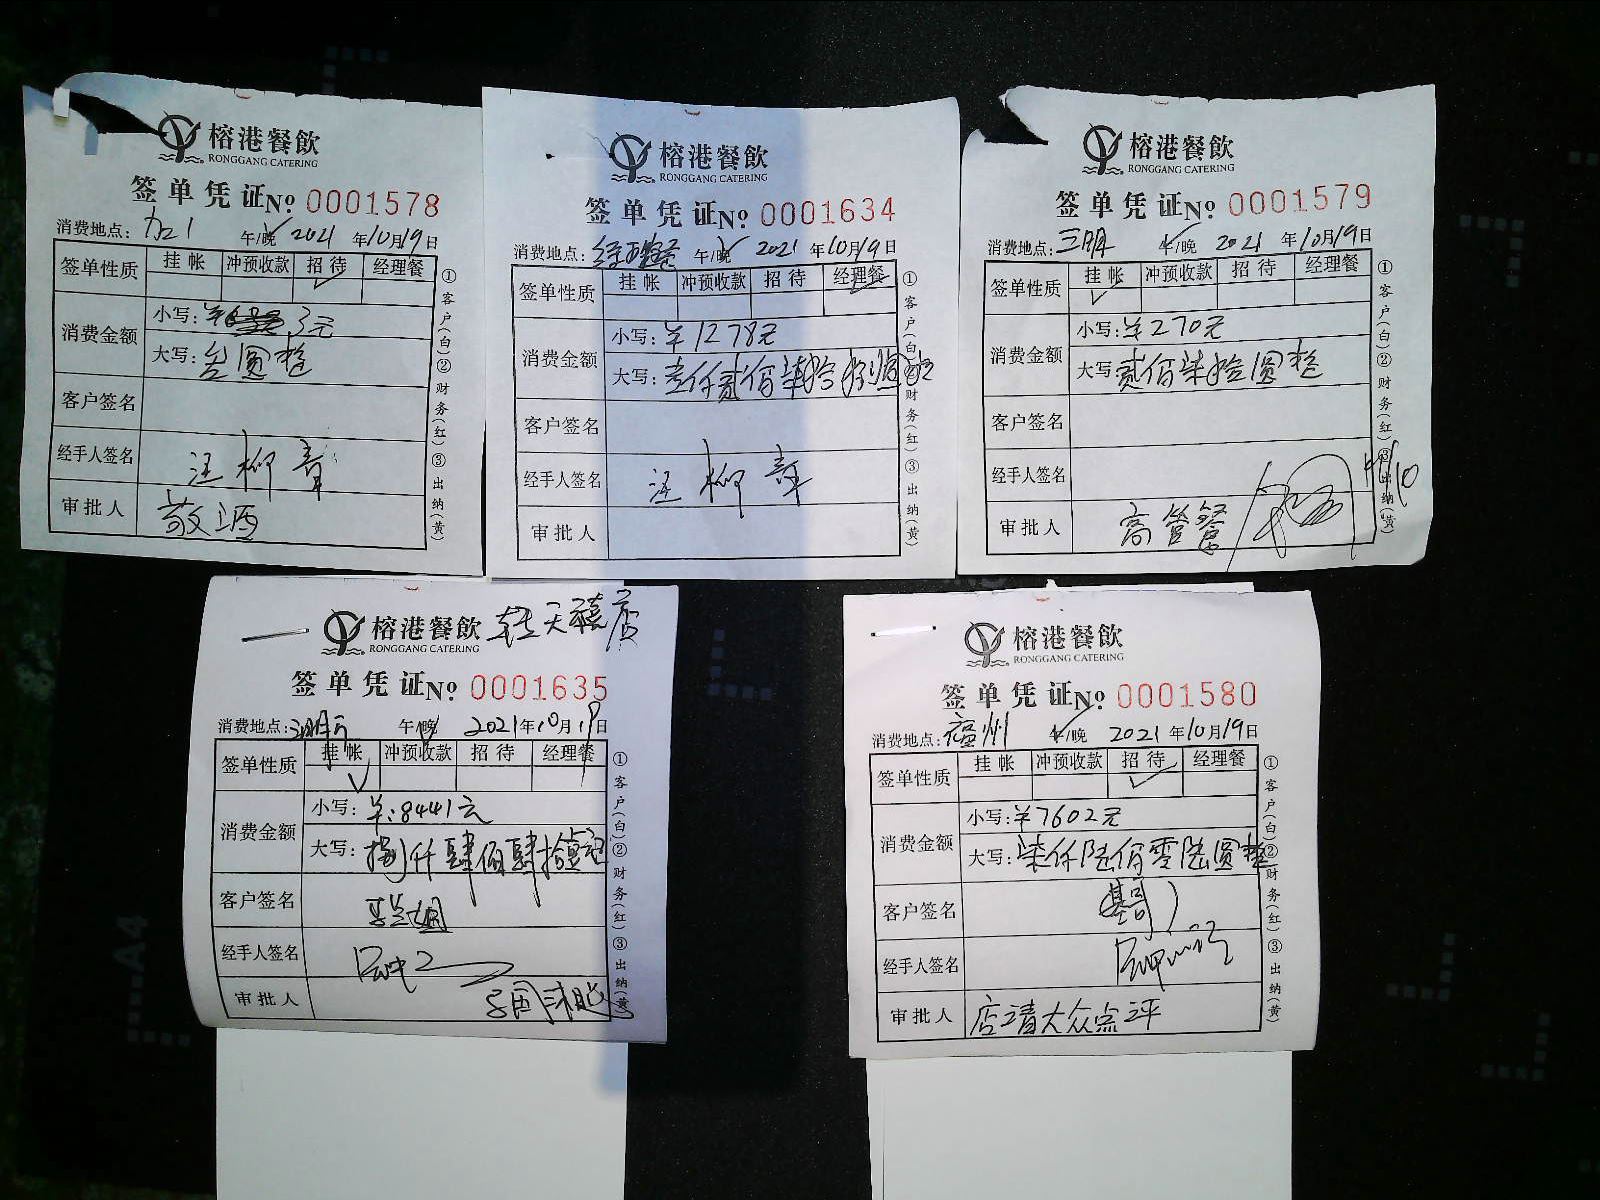 榕港餐飲
RONGGANG CATERING
签单凭证 No 0001578
消费地点: 加1 午/晚 2021 年10月19日
签单性质 挂帐 冲预收款 招待 经理餐
消费金额
小写:
大写: 圆整
客户签名
经手人签名 汪柳青
审批人 敬酒
①客户(白)②财务(红)③出纳(黄)
榕港餐飲
RONGGANG CATERING
签单凭证 No 0001634
消费地点: 经理餐 午/晚 2021 年10月19日
签单性质 挂帐 冲预收款 招待 经理餐
消费金额
小写: ¥1278元
大写: 壹仟贰佰柒拾捌圆整
客户签名
经手人签名 汪柳青
审批人
①客户(白)②财务(红)③出纳(黄)
榕港餐飲
RONGGANG CATERING
签单凭证 No 0001579
消费地点: 三明 午/晚 2021 年10月19日
签单性质 挂帐 冲预收款 招待 经理餐
消费金额
小写: ¥270元
大写: 贰佰柒拾圆整
客户签名
经手人签名
审批人 高管餐
①客户(白)②财务(红)③出纳(黄)
榕港餐飲 转天禧店
RONGGANG CATERING
签单凭证 No 0001635
消费地点: 午/晚 2021年10月19日
签单性质 挂帐 冲预收款 招待 经理餐
消费金额
小写: ¥:8441元
大写: 捌仟肆佰肆拾壹元
客户签名
经手人签名
审批人
①客户(白)②财务(红)③出纳(黄)
榕港餐飲
RONGGANG CATERING
签单凭证 No 0001580
消费地点: 福州 午/晚 2021 年10月19日
签单性质 挂帐 冲预收款 招待 经理餐
消费金额
小写: ¥7602元
大写: 柒仟陆佰零陆圆整
客户签名
经手人签名
审批人 店请大众点评
①客户(白)②财务(红)③出纳(黄)
A4